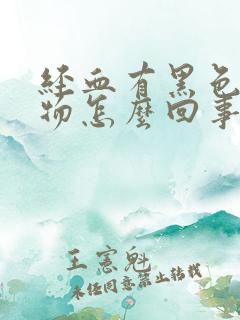 經血有黑色
物怎麼回事
王憲魁
未任同意禁止转载